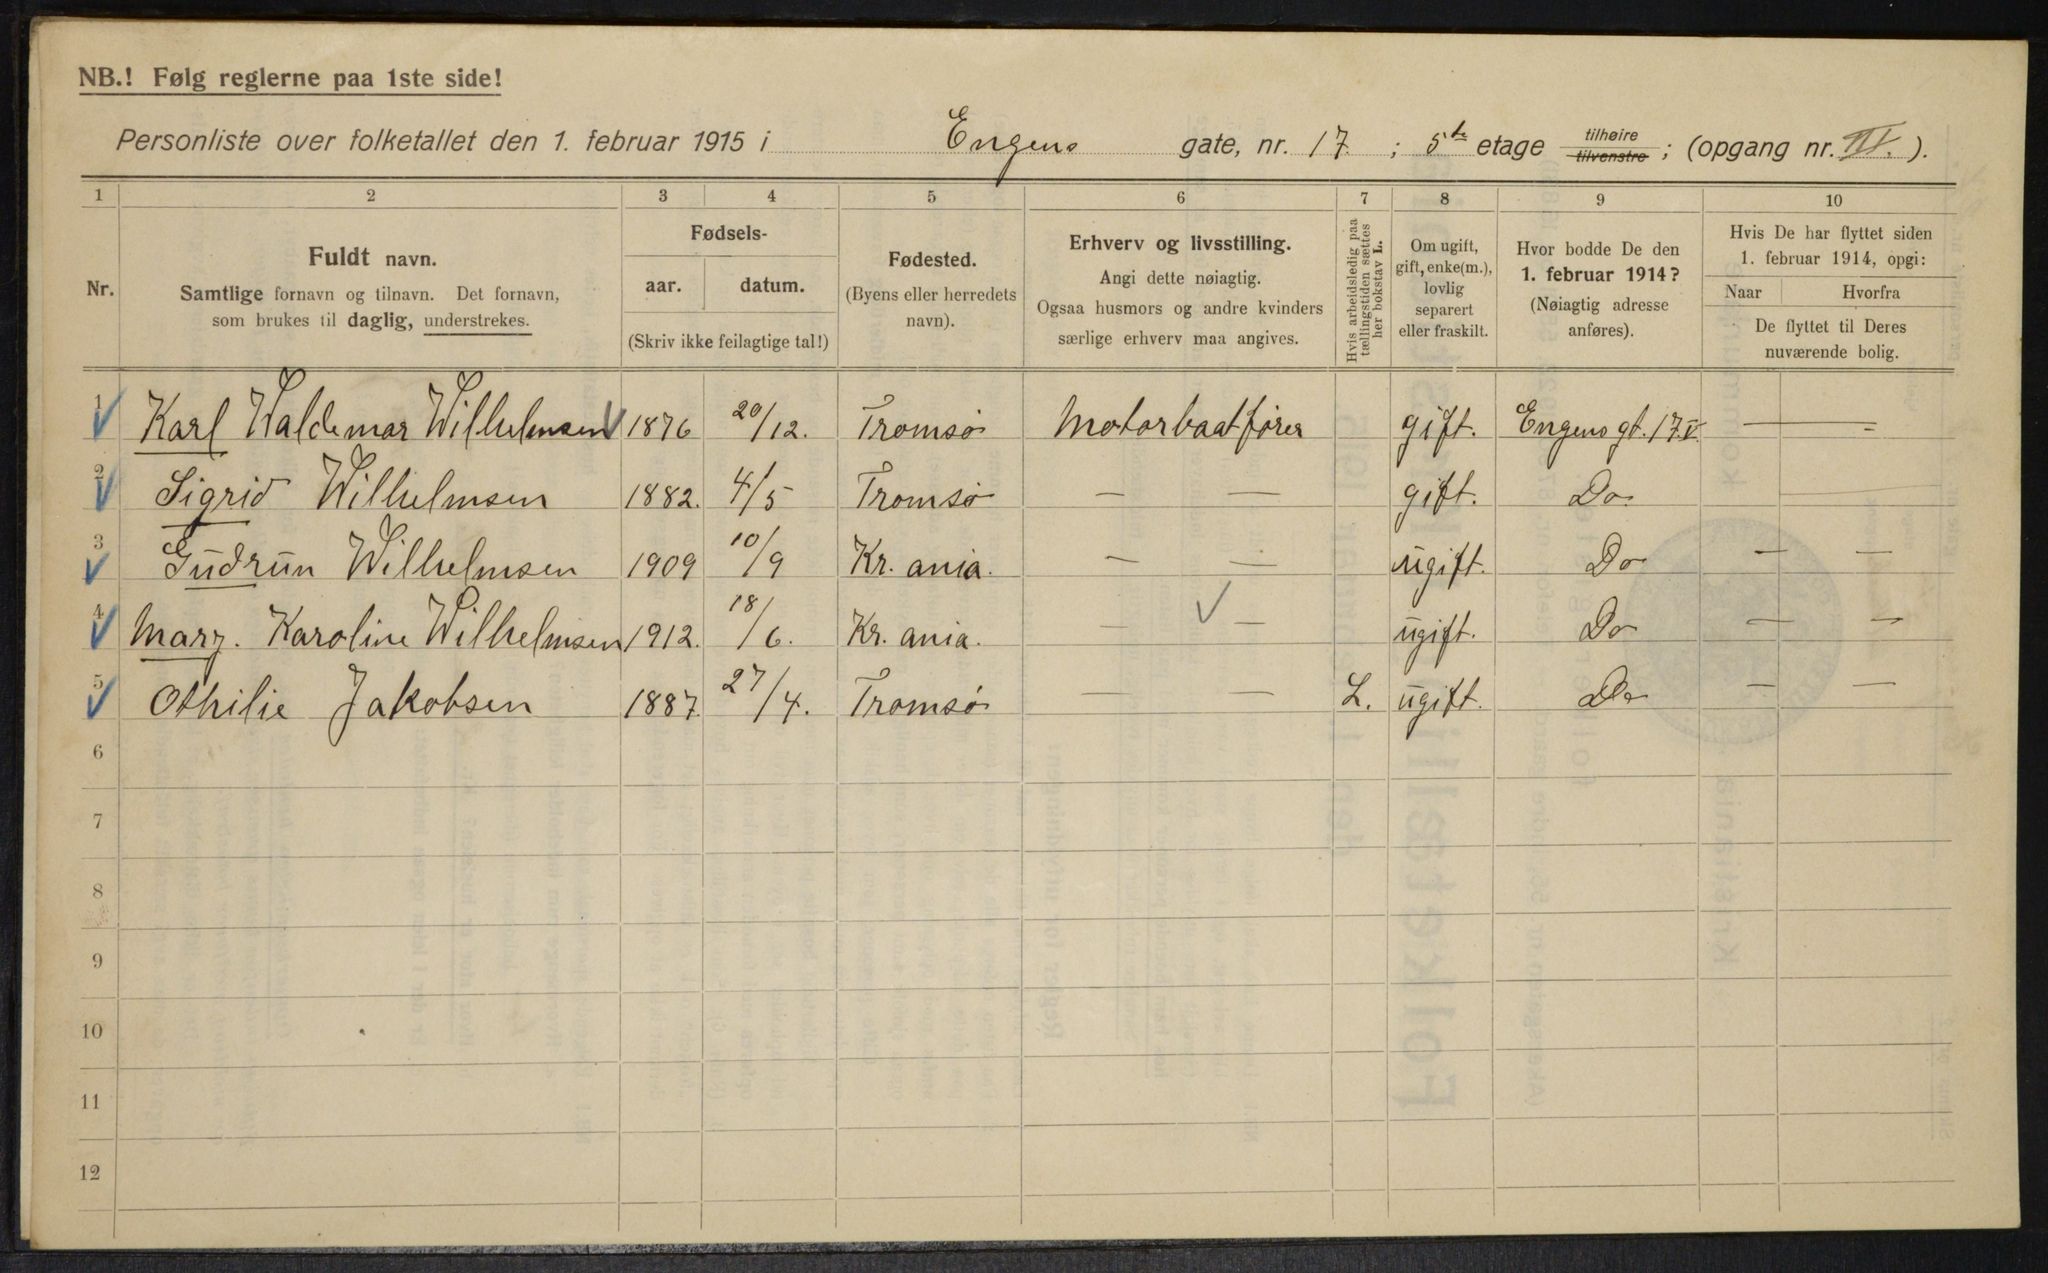 NB.! Følg reglerne paa 1ste side!
Personliste over folketallet den 1. februar 1915 i Engens gate, nr. 17. ; 5te etage tilhøire tilvenstre ; (opgang nr. III. ).
1 2 3 4 5 6 7 8 9 10
Nr.
Fuldt navn.
Samtlige fornavn og tilnavn. Det fornavn,
som brukes til daglig, understrekes.
Fødsels-
aar. datum.
(Skriv ikke feilagtige tal!)
Fødested.
(Byens eller herredets
navn).
Erhverv og livsstilling.
Angi dette nøiagtig.
Ogsaa husmors og andre kvinders
særlige erhverv maa angives.
Hvis arbeidsledig paa
tællingstiden sættes
her bokstav L.
Om ugift,
gift, enke(m.),
lovlig
separert
eller fraskilt.
Hvor bodde De den
1. februar 1914?
(Nøiagtig adresse
anføres).
Hvis De har flyttet siden
1. februar 1914, opgi:
Naar Hvorfra
De flyttet til Deres
nuværende bolig.
1 Karl Waldemar Wilhelmsen 1876 20/12. Tromsø Motorbaatfører gift. Engens gt. 17 V — –
2 Sigrid Wilhelmsen 1882. 4/5 Tromsø — — gift. Do ——
3 Gudrun Wilhelmsen 1909 10/9 Kr. ania. — — ugift. Do — —
4 Marg. Karoline Wilhelmsen 1912. 18/6. Kr. ania. — — ugift. Do — —
5 Othilie Jakobsen 1887. 27/4. Tromsø — — L. ugift. Do — —
6
7
8
9
10
11
12